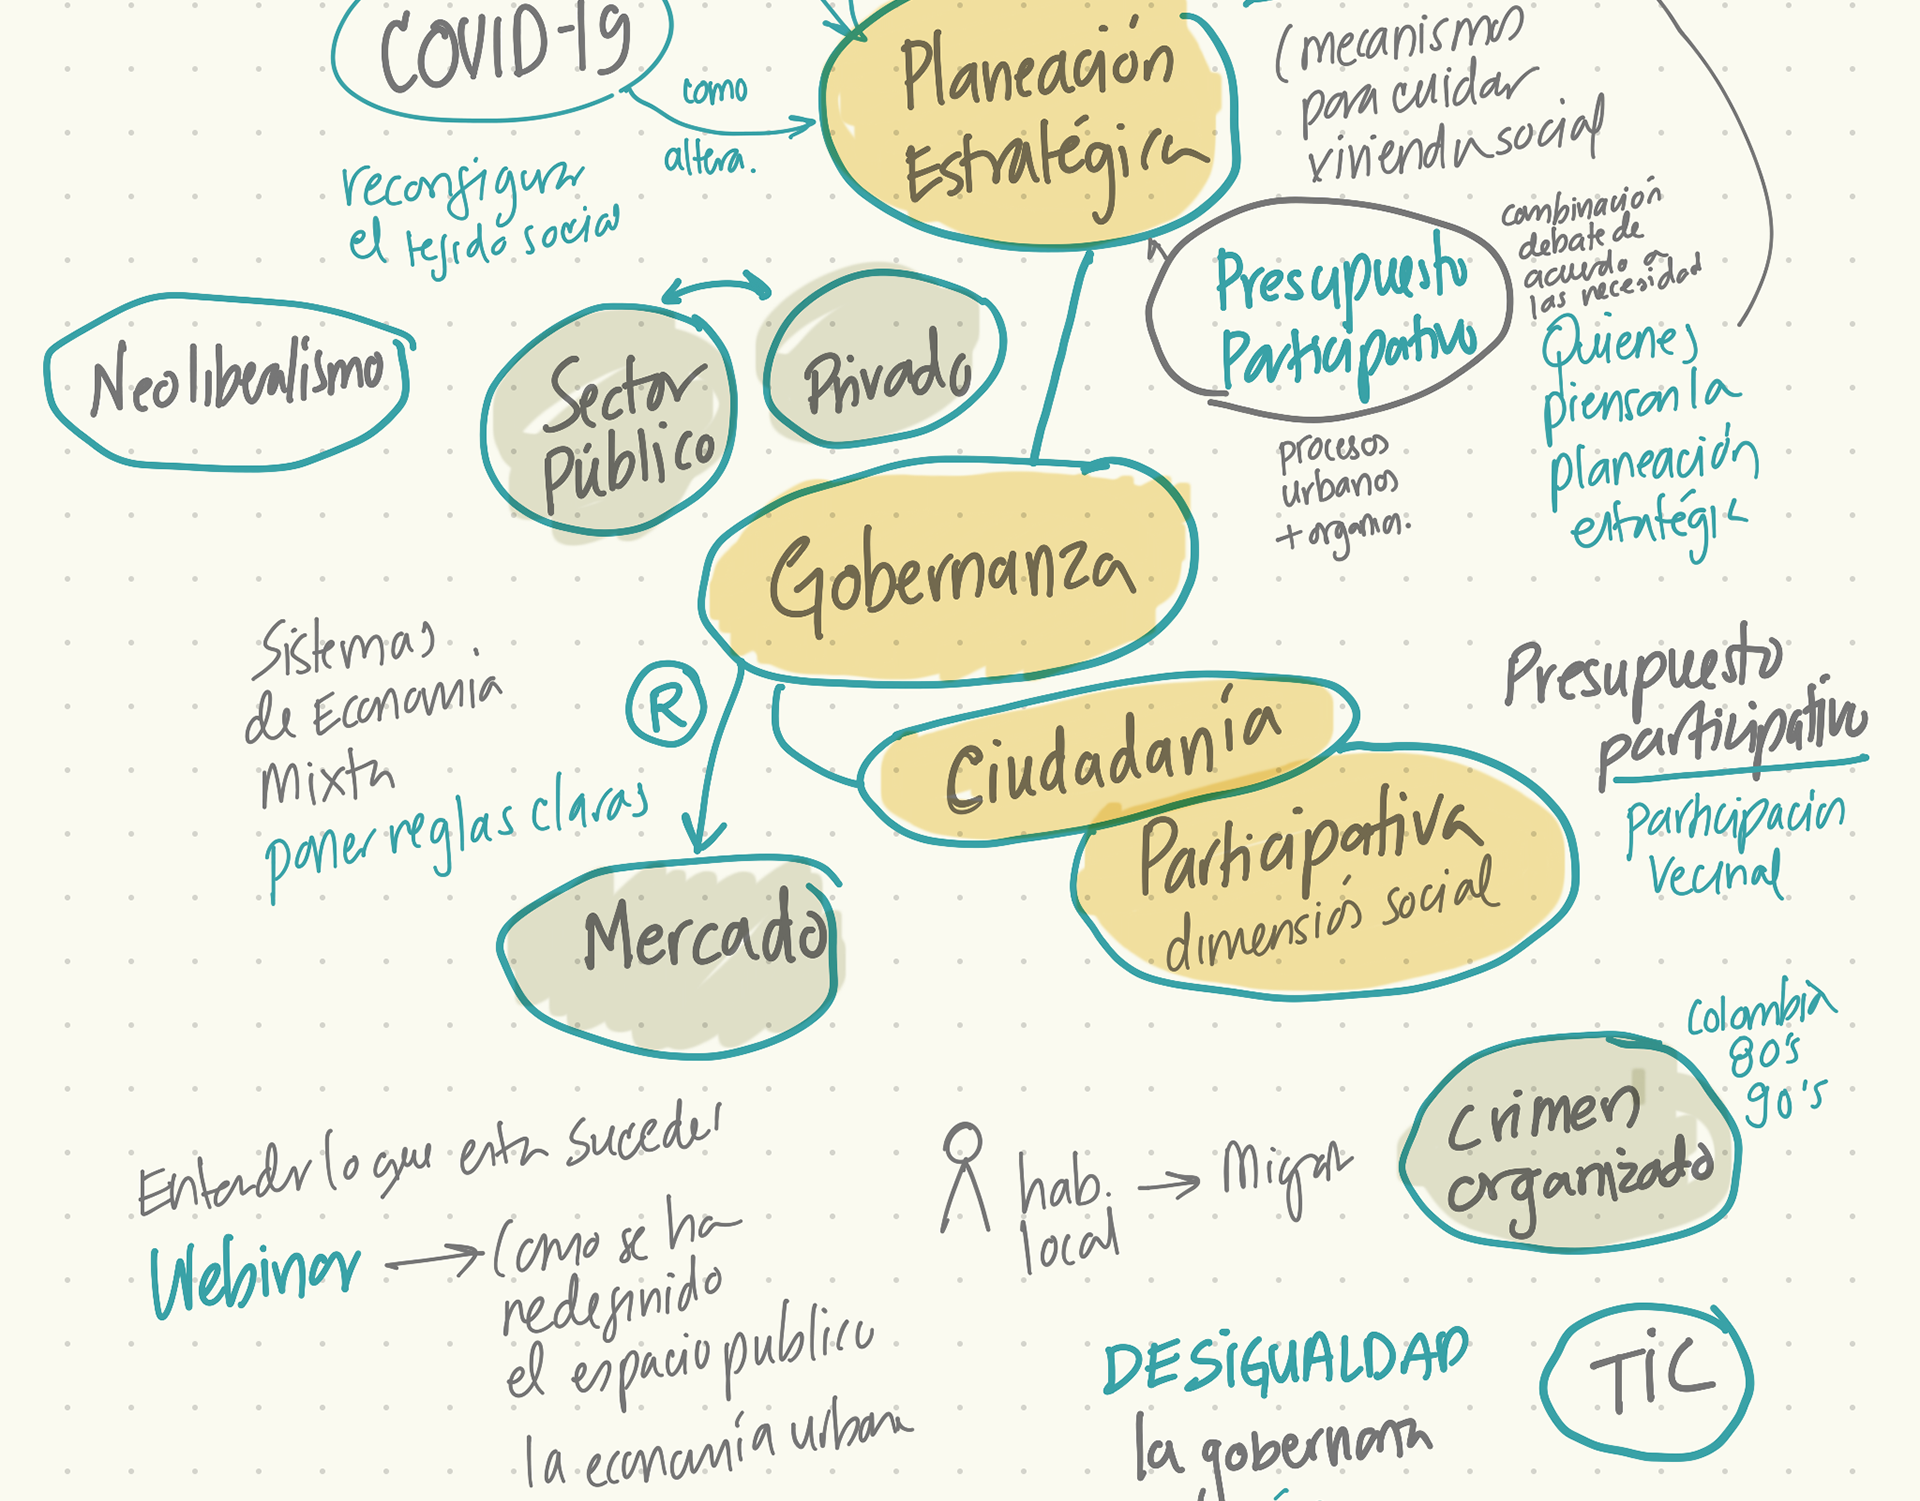 COVID-19
como
altera.
Planeación
Estratégica
(mecanismos
para cuidar
vivienda social
reconfigurar
el tejido social
combinación
debate de
acuerdo a
las necesidad
Presupuesto
Participativo
Neolibealismo
Sector
Público
Privado
Quienes
piensan la
planeación
estratégic
procesos
urbanos
Gobernanza
Sistemas.
de Economia
Mixta
poner reglas claras
R
Ciudadanía
Participativa
dimensiós social
Presupuesto
participativo
participación
Vecinal
Mercado
Colombia
80's
90's
Crimen
organizado
Entender lo que esta suceder
Webinar → Como se ha
redefinido
el espacio publico
la economía urbana
hab. → Migrar
local
DESIGUALDAD
la gobernanza
TIC